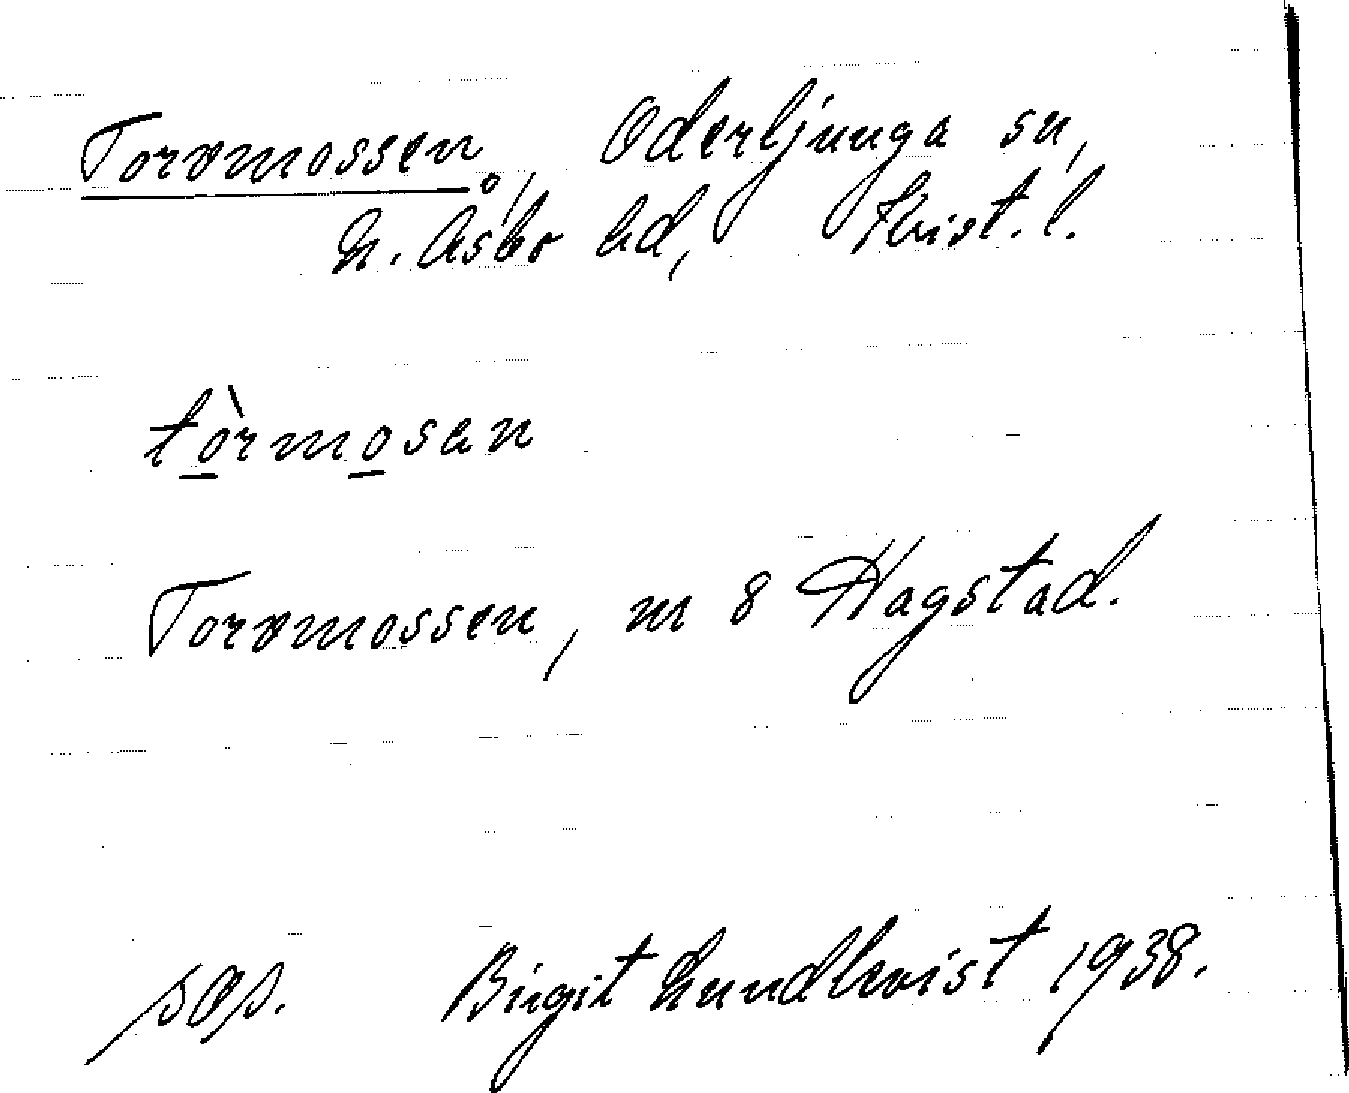 Torvmossen, Oderljunga sn,
N. Åsbo hd, Krist. l.
tòrmosen
Torvmossen, m 8 Hagstad.
Birgit Lundkvist 1938.